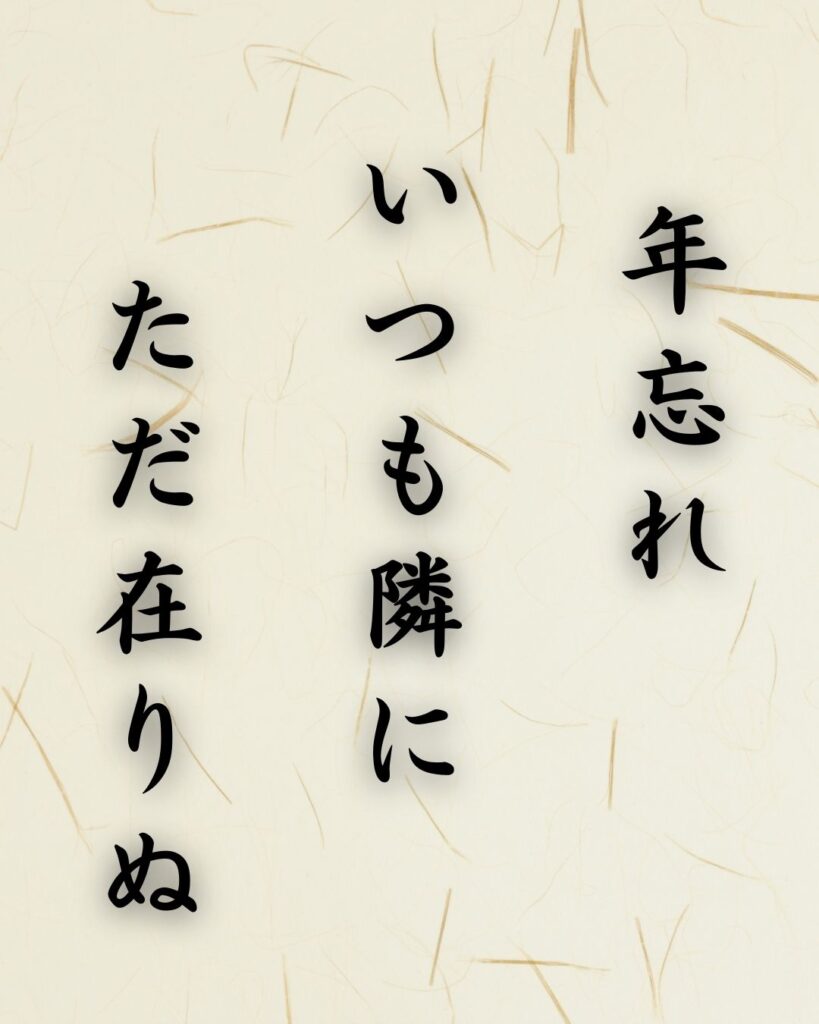 年忘れ
いつも隣に
ただ在りぬ